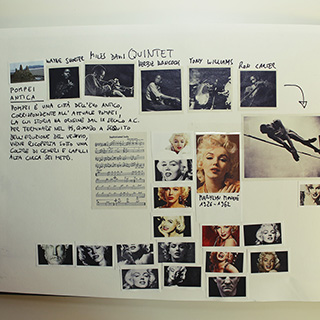 MILES DAVIS QUINTET
WAYNE SHORTER
HERBIE HANCOCK
TONY WILLIAMS
RON CARTER
POMPEI
ANTICA
POMPEI È UNA CITTÀ DELL'EVO ANTICO,
CORRISPONDENTE ALL'ATTUALE POMPEI,
LA CUI STORIA HA ORIGINE DAL IX SECOLO A.C.
PER TERMINARE NEL 79, QUANDO A SEGUITO
DELL'ERUZIONE DEL VESUVIO,
VIENE RICOPERTA SOTTO UNA
COLTRE DI CENERI E LAPILLI
ALTA CIRCA SEI METRI.
MARILYN MONROE
1926-1962